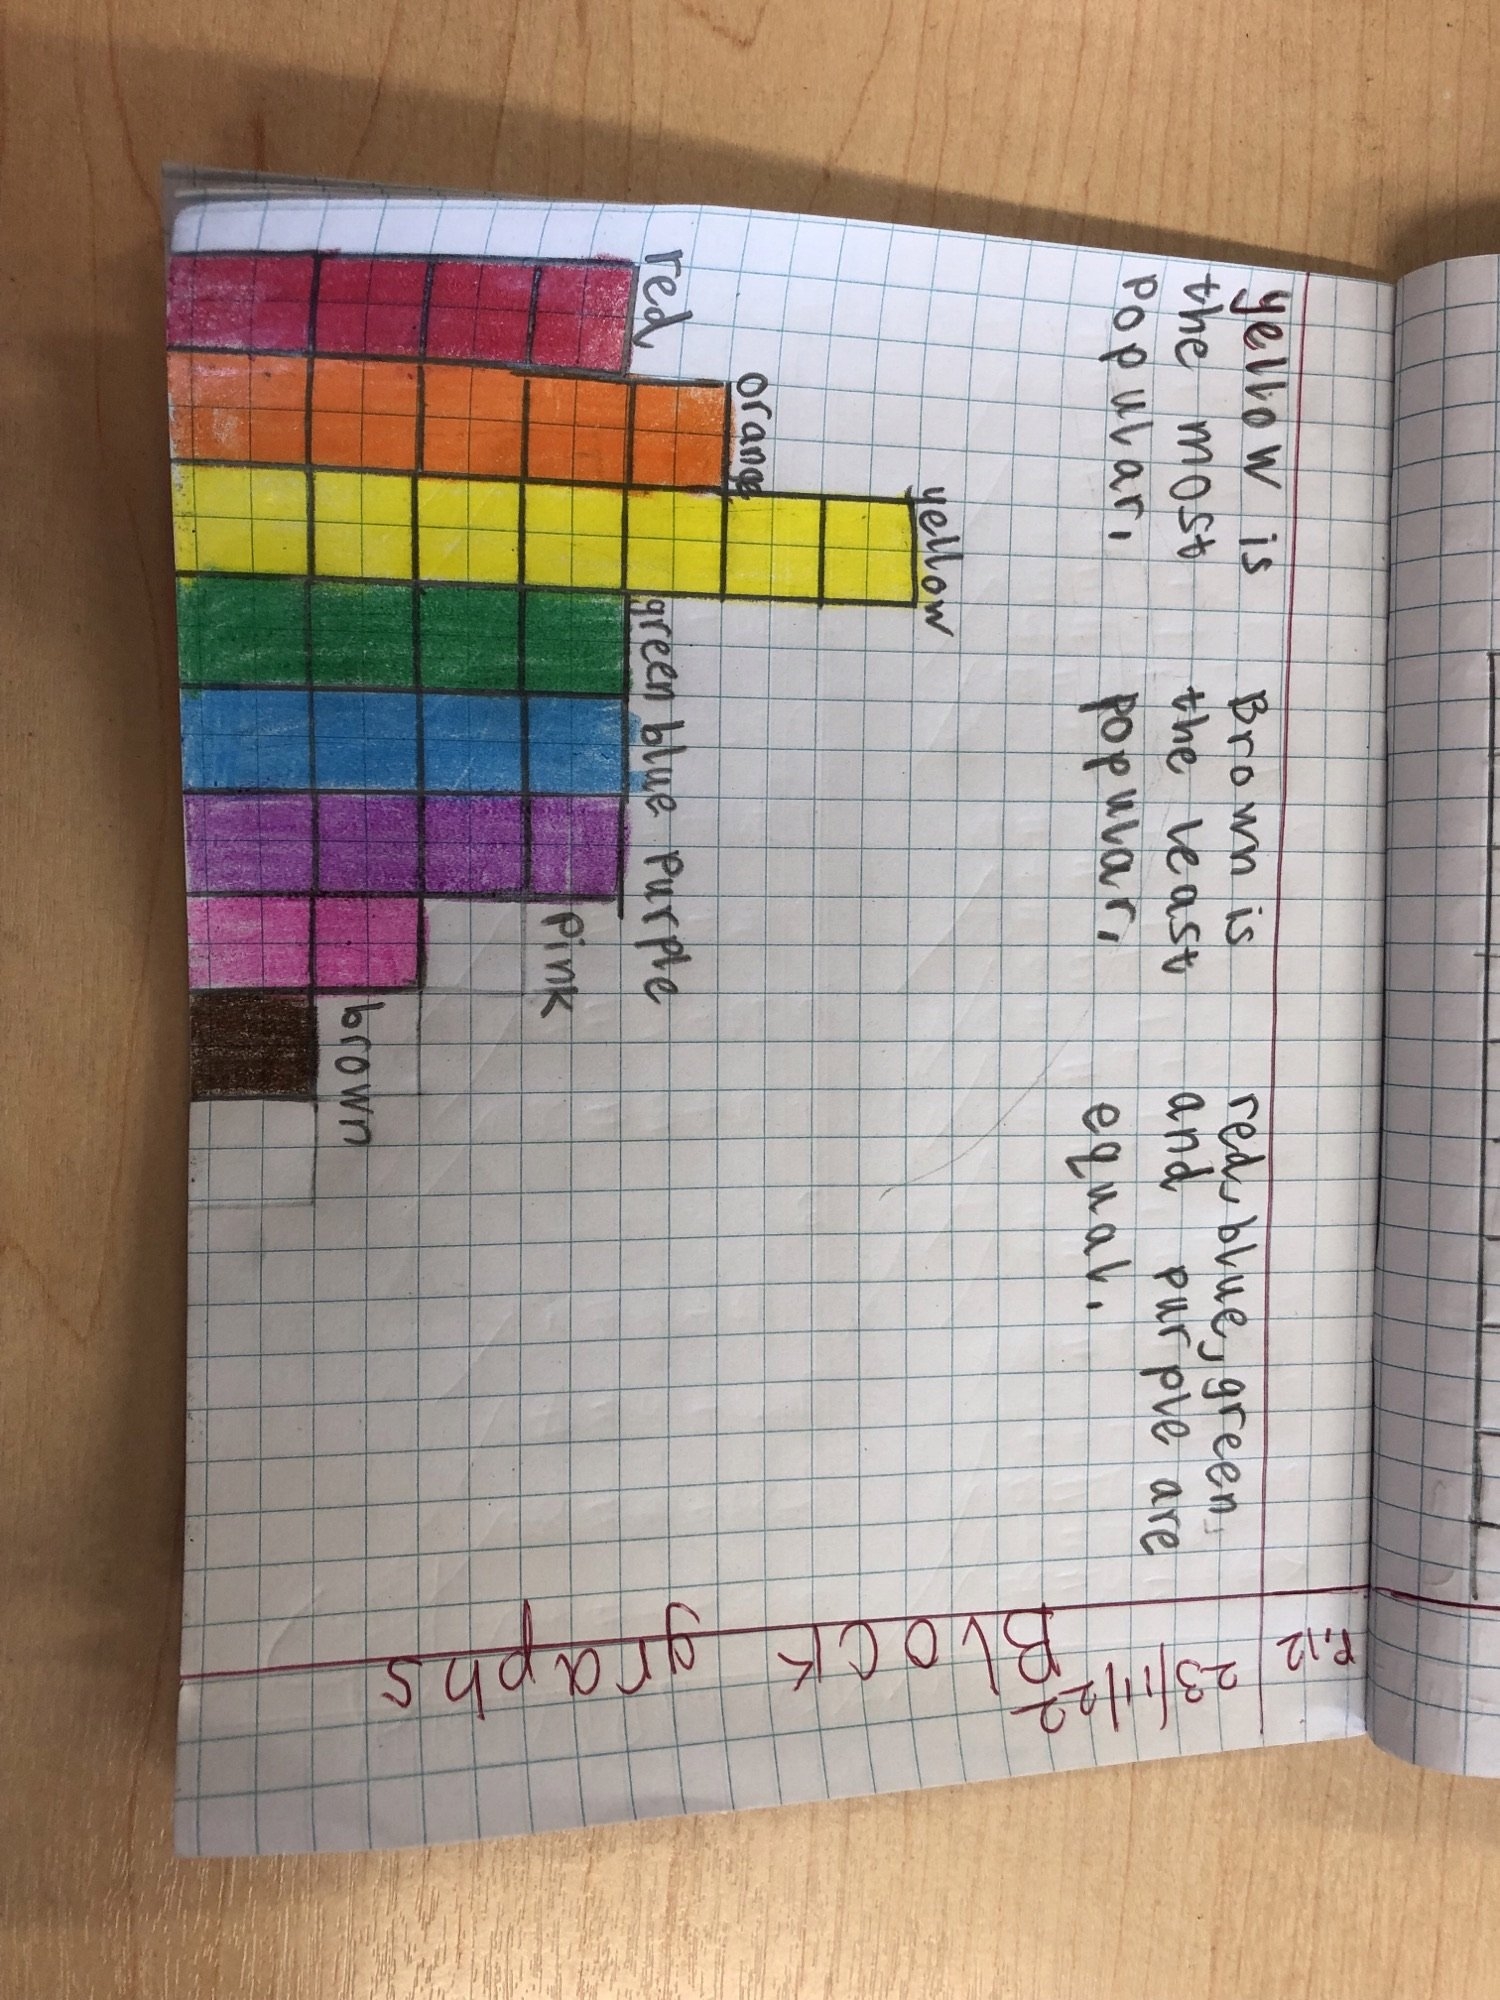 P.12
23/11/22
Block graphs
yellow is
the most
popular.
Brown is
the least
popular.
red, blue, green,
and purple are
equal.
red
orange
yellow
green
blue
purple
pink
brown